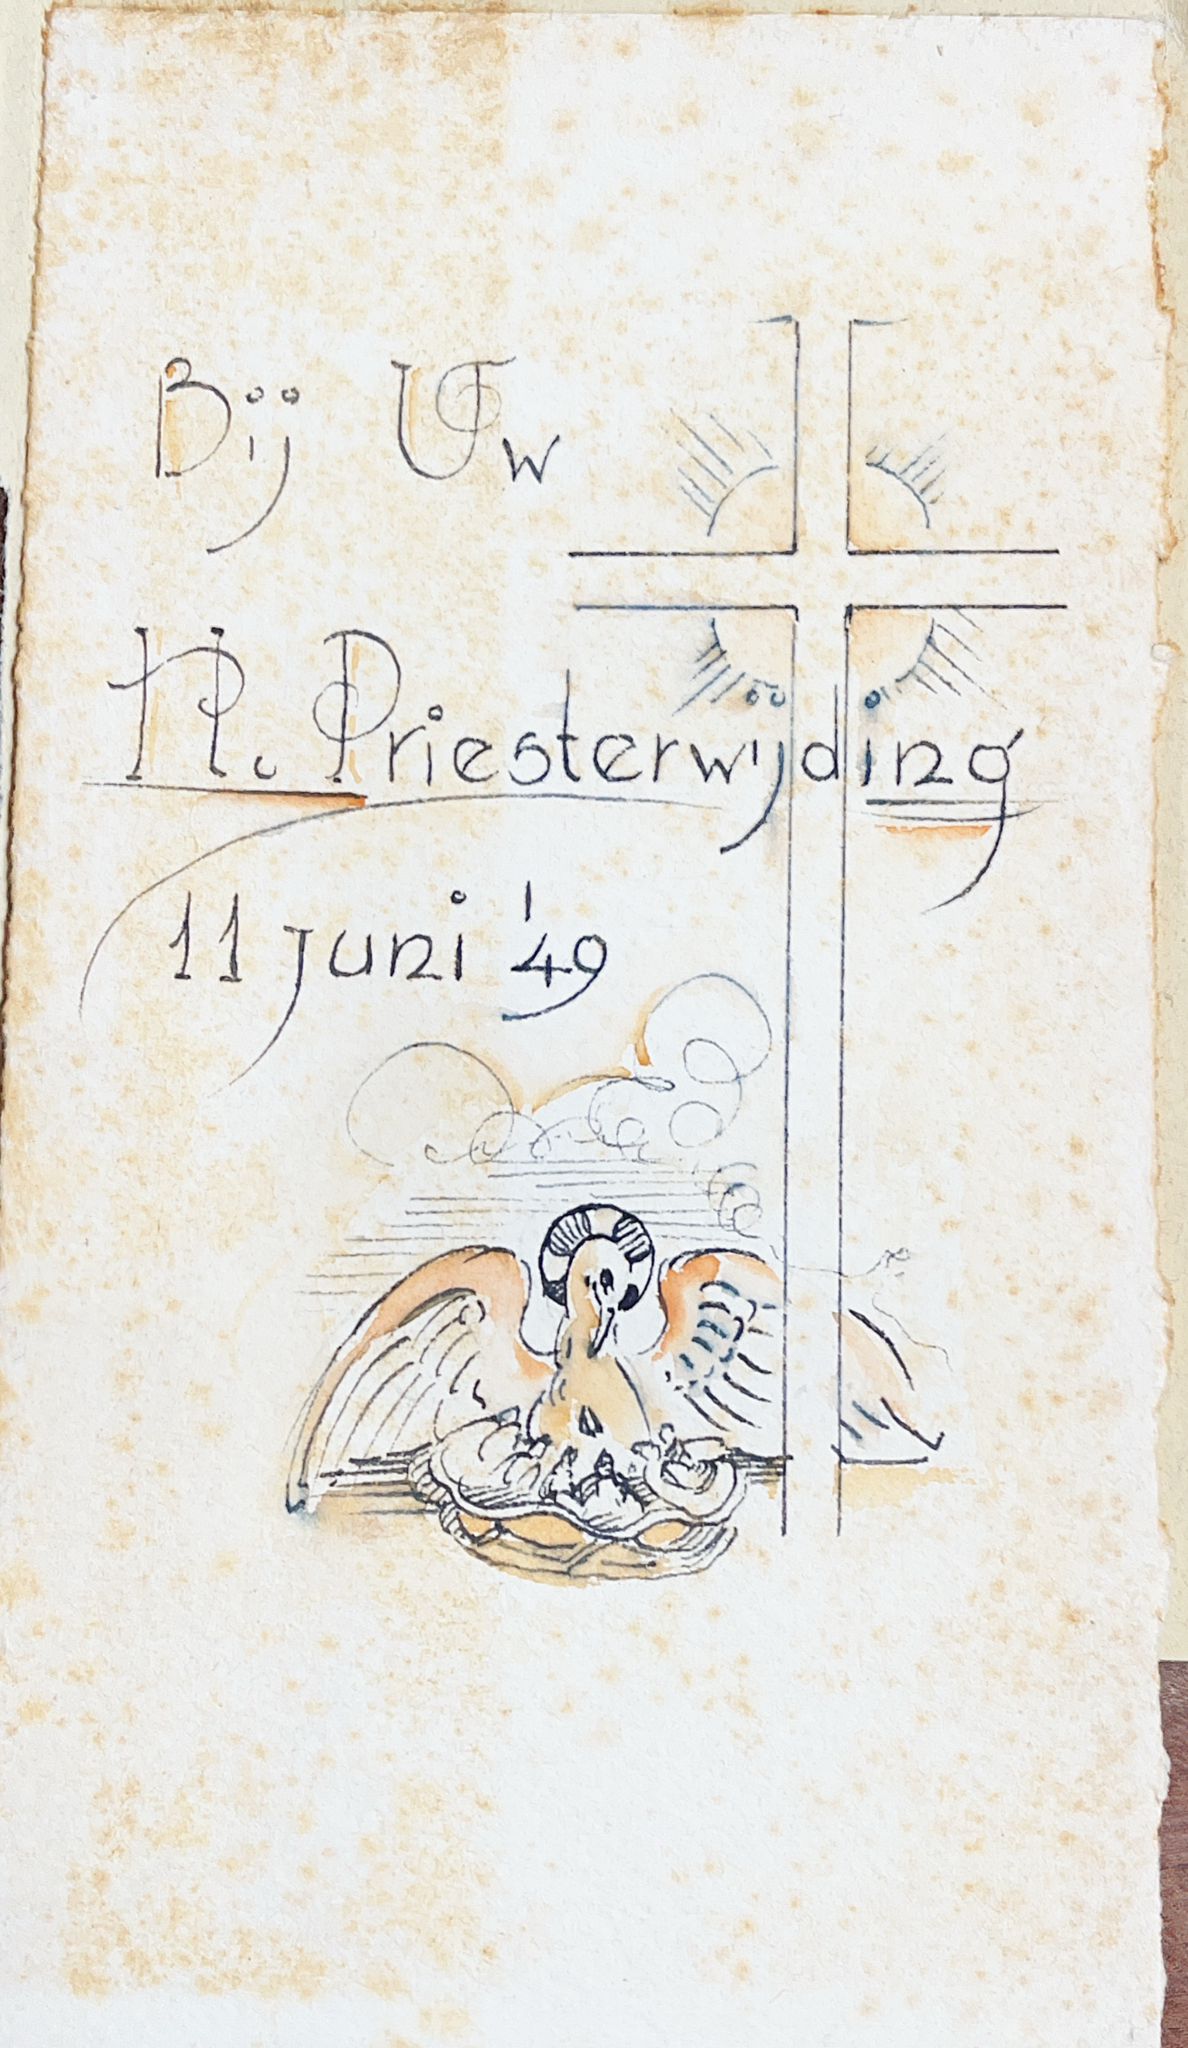 Bij Uw
H. Priesterwijding
11 juni '49